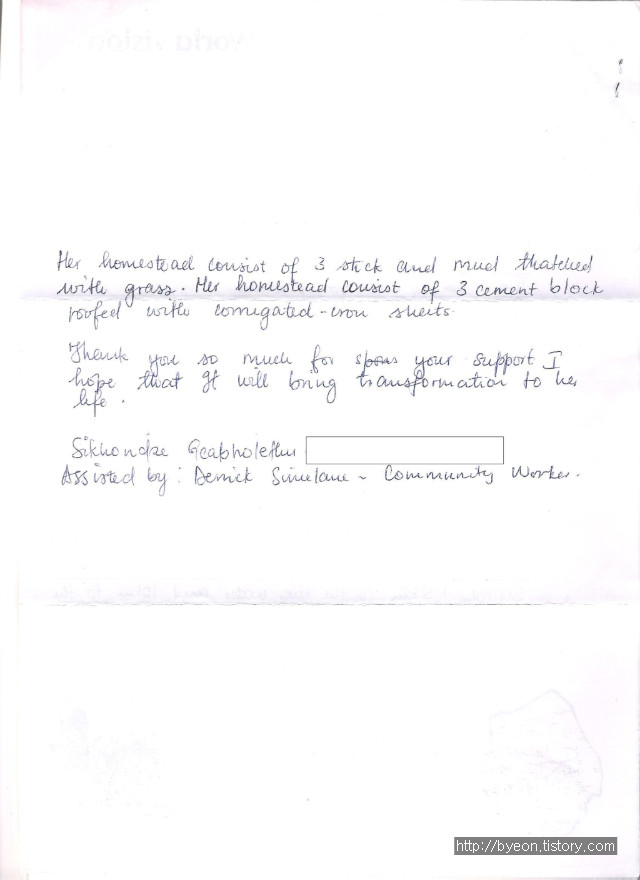 Her homestead consist of 3 stick and mud thatched
with grass. Her homestead consist of 3 cement block
roofed with corrugated-iron sheets.
Thank you so much for your support I
hope that It will bring transformation to her
life.
Assisted by: Derrick Simelane ~ Community Worker.
http://byeon.tistory.com